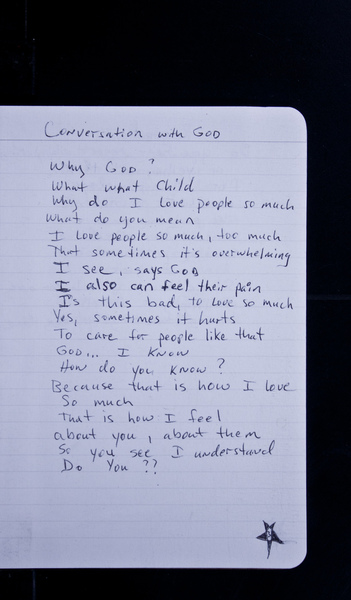 Conversation with GOD
Why GOD?
What what child
Why do I love people so much
What do you mean
I love people so much, too much
That sometimes it's overwhelming
I see, says GOD
I also can feel their pain
Is this bad, to love so much
Yes, sometimes it hurts
To care for people like that
GOD... I know
How do you know?
Because that is how I love
So much
That is how I feel
about you, about them
So you see I understand
Do You??